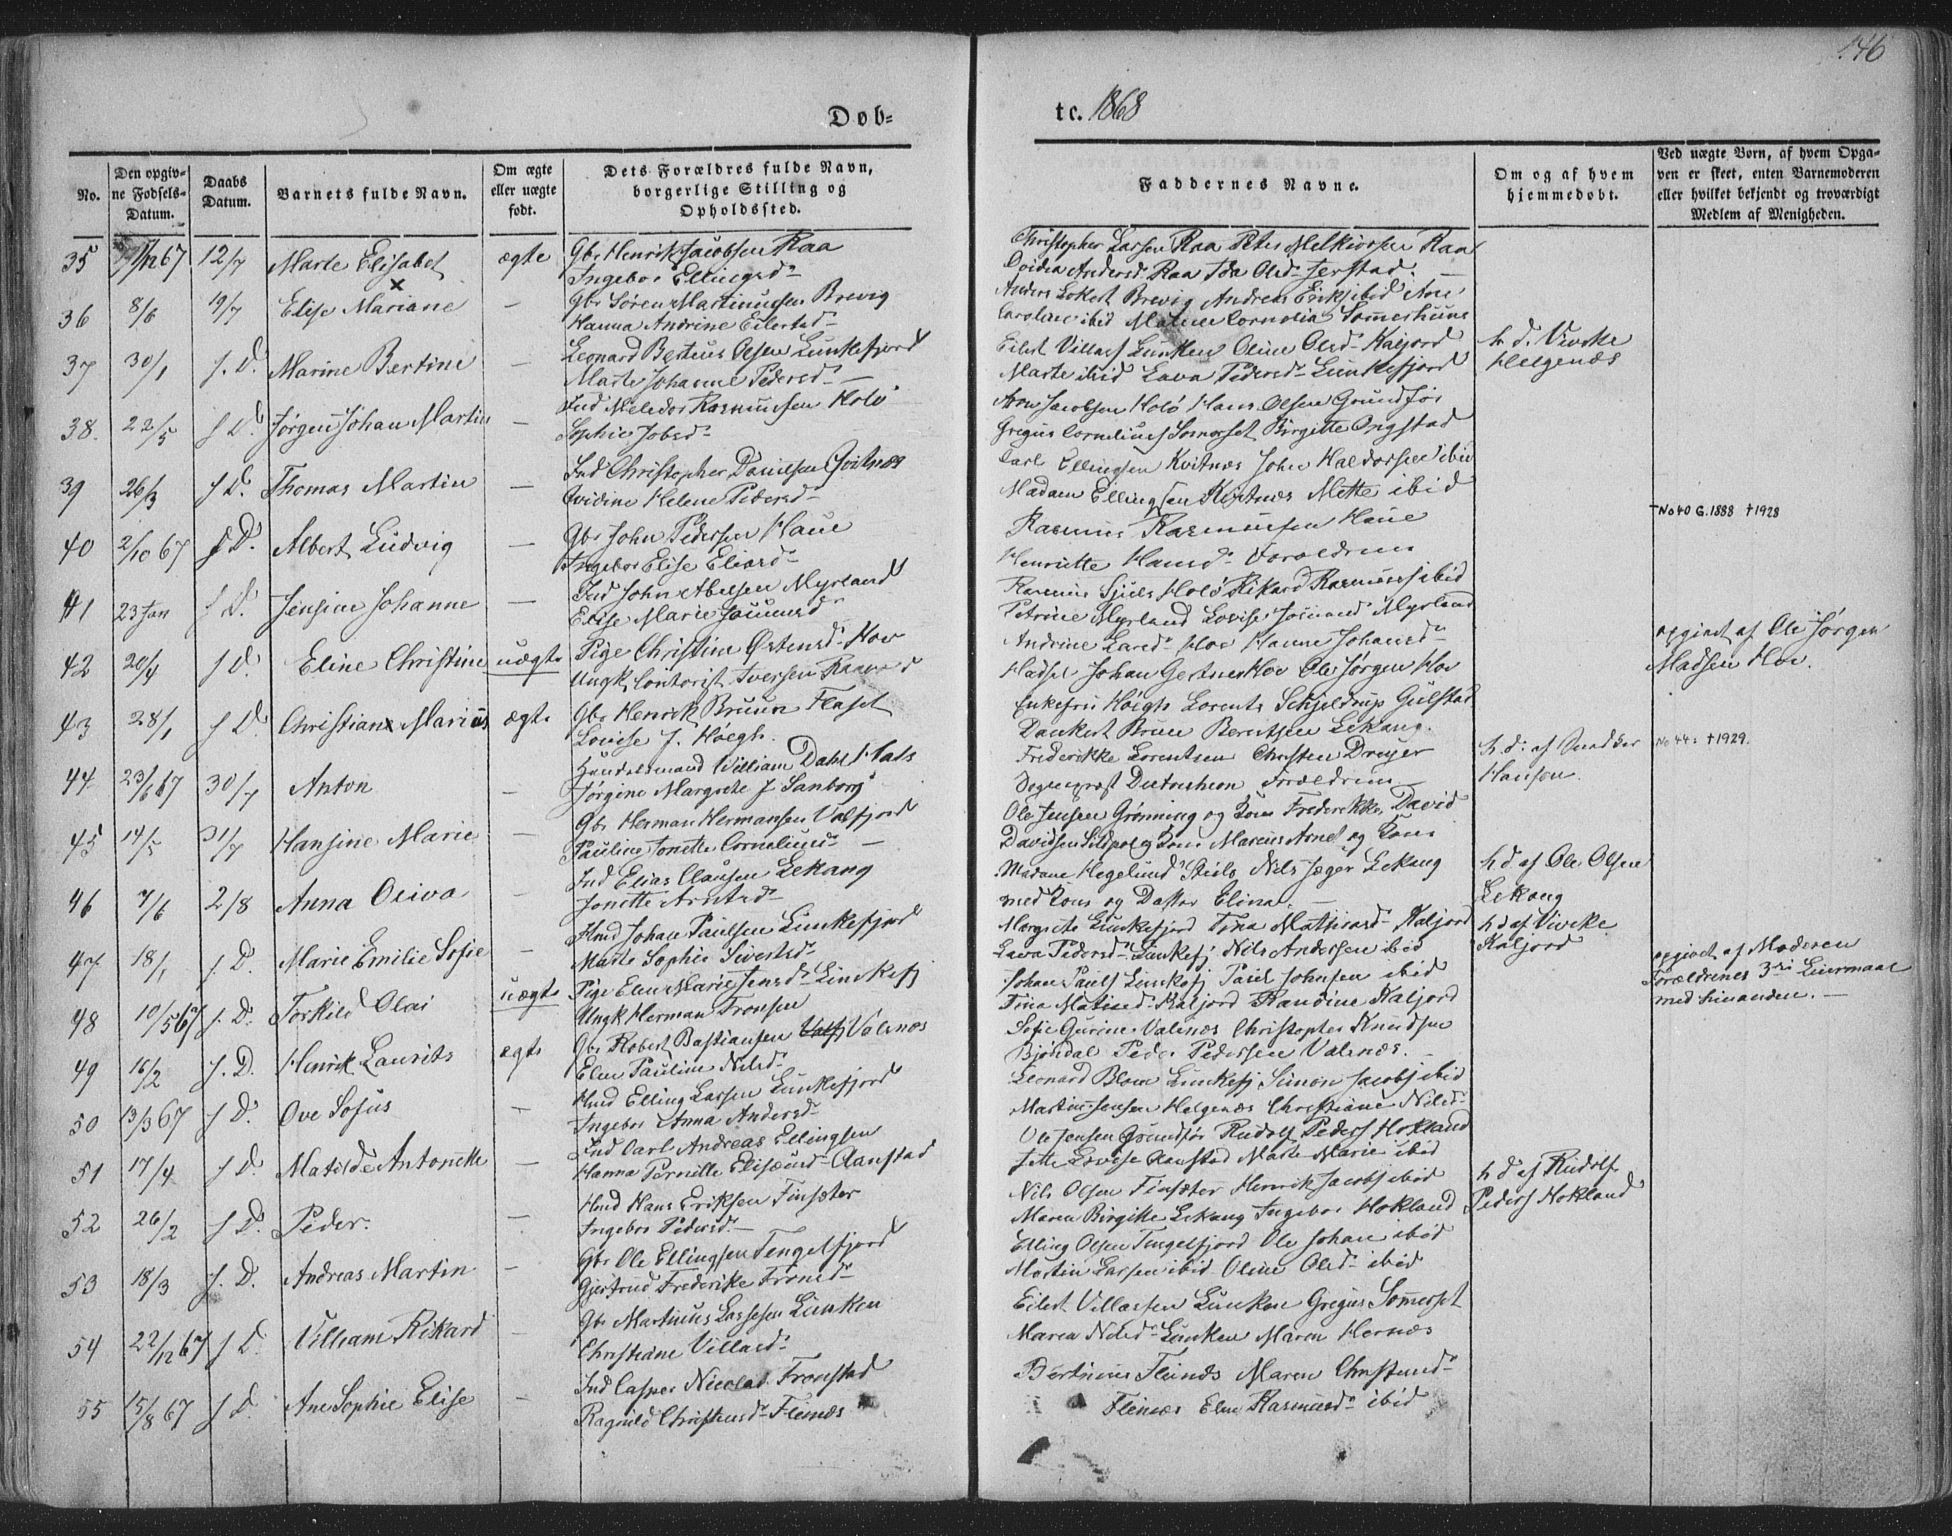 146
Døb-
tc. 1868
No.
Den opgiv-
ne Fødsels-
Datum.
Daabs
Datum.
Barnets fulde Navn.
Om ægte
eller uægte
født.
Dets Forældres fulde Navn,
borgerlige Stilling og
Opholdssted.
Faddernes Navne.
Om og af hvem
hjemmedøbt.
Ved uægte Børn, af hvem Opga-
ven er skeet, enten Barnemoderen
eller hvilket bekjendt og troværdigt
Medlem af Menigheden.
35 /12 67 12/7 Marte Elisabet ægte Gbr Henrik Jacobsen Raa
Ingebor Ellingsd-
Christopher Larsen Raa Peter Melkiorsen Raa
Andersd. Raa Ida Olsd- Jerstad.
36 8/6 19/7 Elise Mariane - Gbr Søren Martinussen Brevig
Hanna Andrine Eilertsd-
Anders Lokert Brevig Andreas Eriksf ibid Ane
Caroline ibid Cornelia
37 30/1 f. D. Marine Bertine - Leonard Berteus Olsen Lunkefjord
Marte Johanne Pedersd-
Eilert Villasf Lunken Oline Olsd- Kaljord
Marte ibid Lava Pedersd- Lunkefjord
h. d. Viveke
Helgenæs
38. 22/5 f D. Jørgen Johan Martin - Ind Meledor Rasmussen Holø
Sophie Jobsd-
Jacobsen Holø Hans Olsen Grundfør
Gregus Corneliusf Somerset Birgitte Ongstad
39 26/3 f D. Thomas Martin - Ind Christopher Danielsen Qvitnæs
Qvidine Helene Pedersd-
Carl Ellingsen Kvitnæs John Haldorsen ibid
Madam Ellingsen Kvitnæs Mette ibid
40 2/10 67 f D. Albert Ludvig - Gbr John Pedersen Haue
Ingebor Elise Eliasd-
Rasmus Rasmussen Haue
Henriette Hansd- Forældrene
No 40 G. 1888 † 1928
41 23 Jan f D. Jensine Johanne - Ind John Abelsen Myrland
Elise Marie
Rasmus Sjuls Holø Rikard Rasmussf ibid
Petrine Myrland Lovise Myrland
42 20/4 f D. Eline Christine uægte Pige Christine Østensd- Hov
Ungk. Contorist Iversen
Andrine Larsd- Hov Hanne Johansd-
Hadsel Johan Gertnes Hov Ole Jørgen Hov
opgivet af Ole Jørgen
Madsen Hov.
43 28/1 f D. Christian Marius ægte Gbr Henrik Bruun Flaset
Lovise J. Høegh.
Enkefru Høegh Lorents Schjeldrup Gulstad
Dankert Brun Berntsen Lekang.
44 23/6 67 30/7 Anton - Handelsmand William Dahl
Jørgine Margrete J Sanborg
Frederikke Lorentsen Christen Dreyer
Sogneprest Forældrene
h. d: af
Hansen.
No 44: † 1929.
45 14/5 31/7 Hansine Marie - Gbr Herman Hermansen Valfjord
Pauline Jonette Corneliusd- -
Ole Jensen Grønning og Kone Frederikke, David
Davidsen Kone Marcus Arnet og Kone
46 7/6 2/8 Anna Oliva - Ind Elias Clausen Lekang
Jonette Arntsd-
Madame Hegelund Steilo Nils Jæger Lekang
med Kone og Datter Elina. -
h d af Ole Olsen
Lekang
47 18/1 f. D. Marie Emilie Sofie - Hmd Johan Paulsen Lunkefjord
Marte Sophie Sivertsd-
Margrete Lunkefjord Tina Mathiasd- Kaljord
Lava Pedersd- Lunkefj Nils Andersen ibid
h d af Viveke
Kaljord
48 10/5 67 f. D. Torkild Olai uægte Pige Elen Marie Jensd- Lunkefj
Ungk Herman Fronsen
Johan Paulf Lunkefj Paul Johnsen ibid
Tina Matisd- Kaljord Randine Kaljord
opgivet af Moderen
Forældrenes 3die Leiermaal
med hinanden. -
49 16/2 f. D. Henrik Laurits ægte Gbr Robert Bastiansen Valfj Valsnæs
Elen Pauline Nilsd-
Sofie Gurine Valsnæs Christopher Knudsen
Bjørndal Peder Pedersen Valsnæs. -
50 13/3 67 f D. Ove Sofus - Hmd Elling Larsen Lunkefjord
Ingebor Anna Andersd-
Leonard Blom Lunkefj Simon Jacobsf ibid
Martin Jensen Helgenæs Christiane Nilsd-
51 17/4 f D. Matilde Antonette - Ind Carl Andreas Ellingsen
Hanna Pernille Eliseusd- Aanstad
Ole Jensen Grundfør Rudolf Pedersf Hokland
Jette Lovise Aanstad Marte Marie ibid
52 26/2 f D. Peder. - Hmd Hans Eriksen Finsæter
Ingebor Pedersd-
Nils Olsen Finsæter Henrik Jacobsf ibid
Maren Birgitte Lekang Ingebor Hokland
h d af Rudolf
Pedersf Hokland
53 18/3 f. D. Andreas Martin - Gbr Ole Ellingsen Tengelfjord
Gjertrud Frederike Fronsd-
Elling Olsen Tengelfjord Ole Johan ibid
Martin Larsen ibid Oline Olsd- ibid
54 22/12 67 f D. Villiam Rikard - Gbr Martinus Larsen Lunken
Christiane Villasd-
Eilert Villassen Lunken Gregus Somerset
Maren Nilsd- Lunken Maren Hernæs
55 15/8 67 f D. Ane Sophie Elise - Ind Casper Nicolai Fronstad
Ragnild Christensd- Fleinæs
Bertinus Fleinæs Maren Christensd-
Fleinæs Elen Rasmusd- ibid